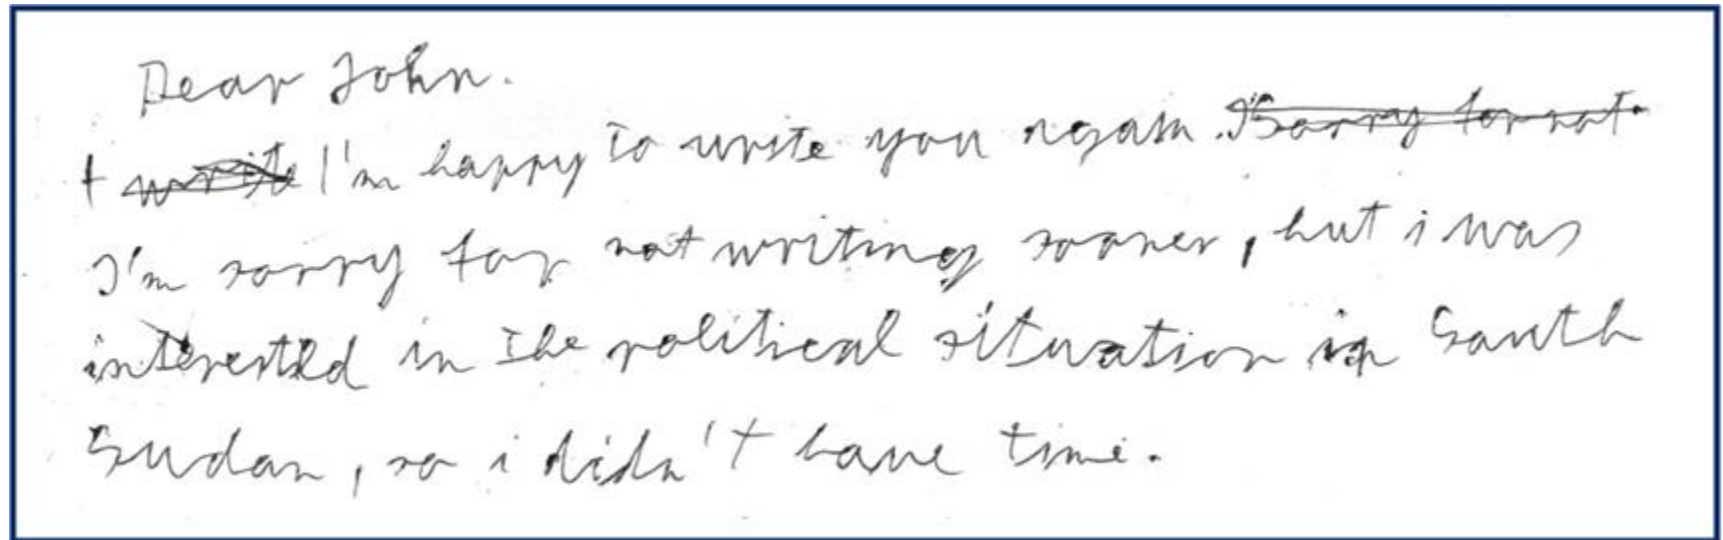 Dear John.
I ~~write~~ I'm happy to write you again. ~~Sorry for not~~
I'm sorry for not writing sooner, but i was
interested in the political situation in South
Sudan, so i didn't have time.